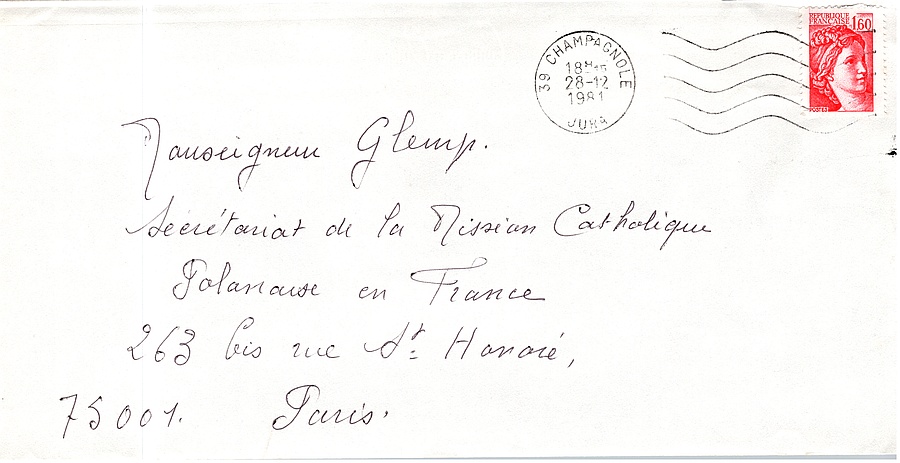 RÉPUBLIQUE
FRANÇAISE 1,60
POSTES
39 CHAMPAGNOLE
18H15
28-12
1981
JURA
Monseigneur Glemp.
Secrétariat de la Mission Catholique
Polonaise en France
263 bis rue St. Honoré,
75001. Paris.